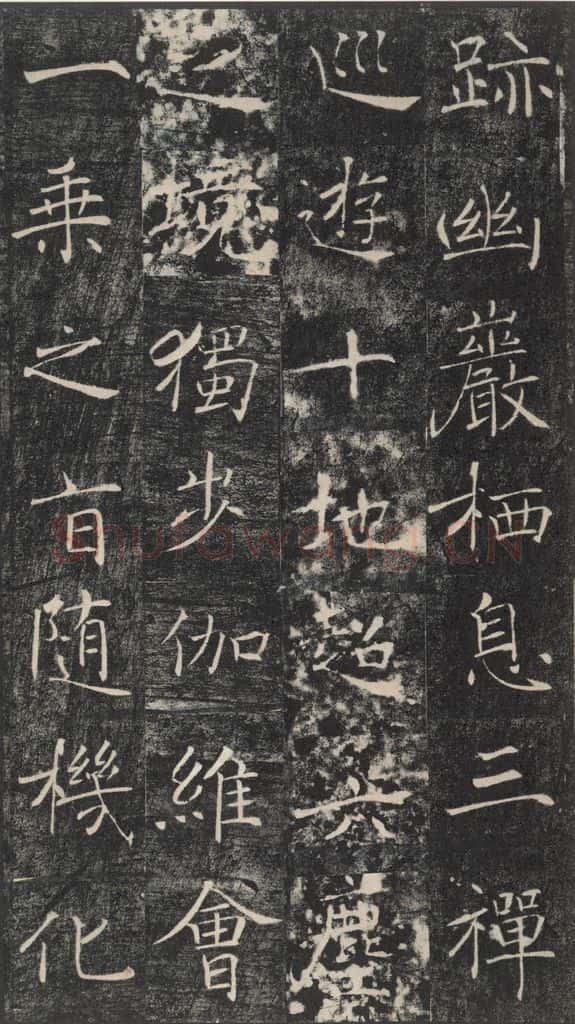 跡幽巖栖息三禪
巡遊十地超六塵
之境獨步伽維會
一乘之旨随機化
Shufawang.CN